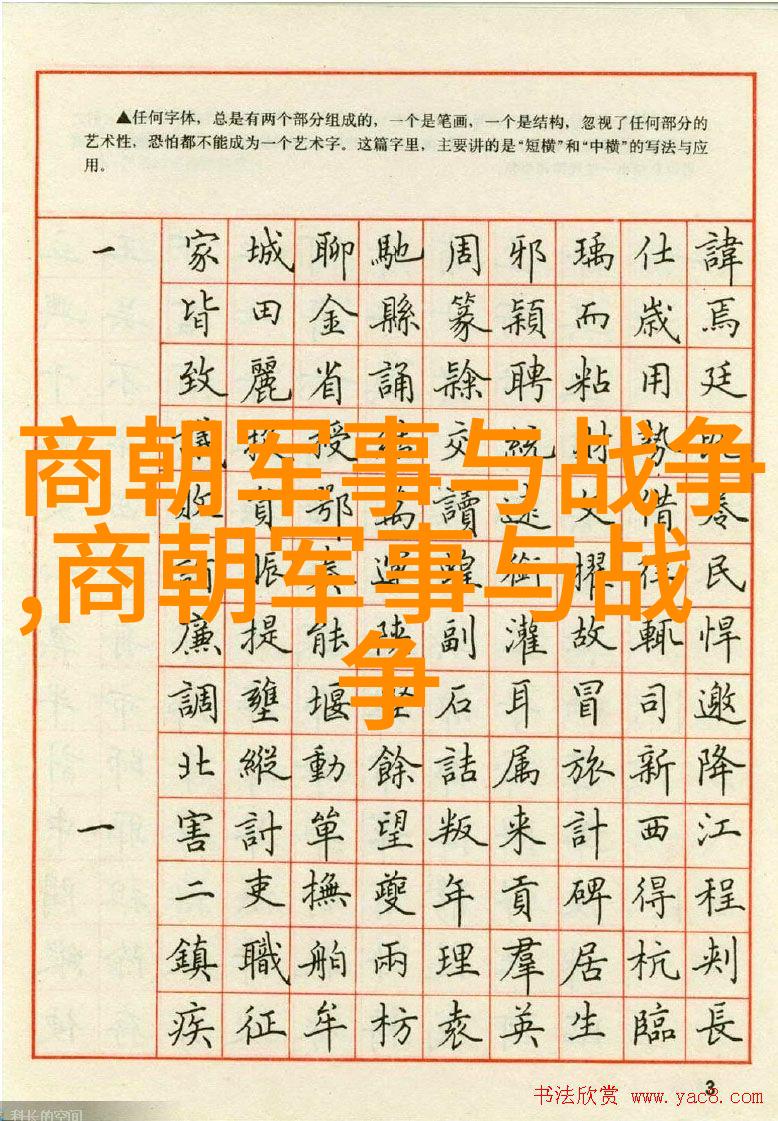 ▲任何字体，总是有两个部分组成的，一个是笔画，一个是结构，忽视了任何部分的
艺术性，恐怕都不能成为一个艺术字。这篇字里，主要讲的是“短横”和“中横”的写法与应
用。
一 家城聊馳周邪瑀仕諱
皆田金縣篆穎而歳焉
致麗省誦聘粘用廷
授交統勢
商朝军事与战争
鄂讀文借
,商朝军事与战
民
廉提能陝副灌故輒悍
争
調壅堰石耳冒司邀
北縱動餘詰属旅新降
一 害討箪望叛来計西江
二吏撫夔年貢碑得程
鎮職舶兩理羣居杭刺
疾征牟枋袁英生臨長
3
书法欣赏 www.yac8.com
科长的空间